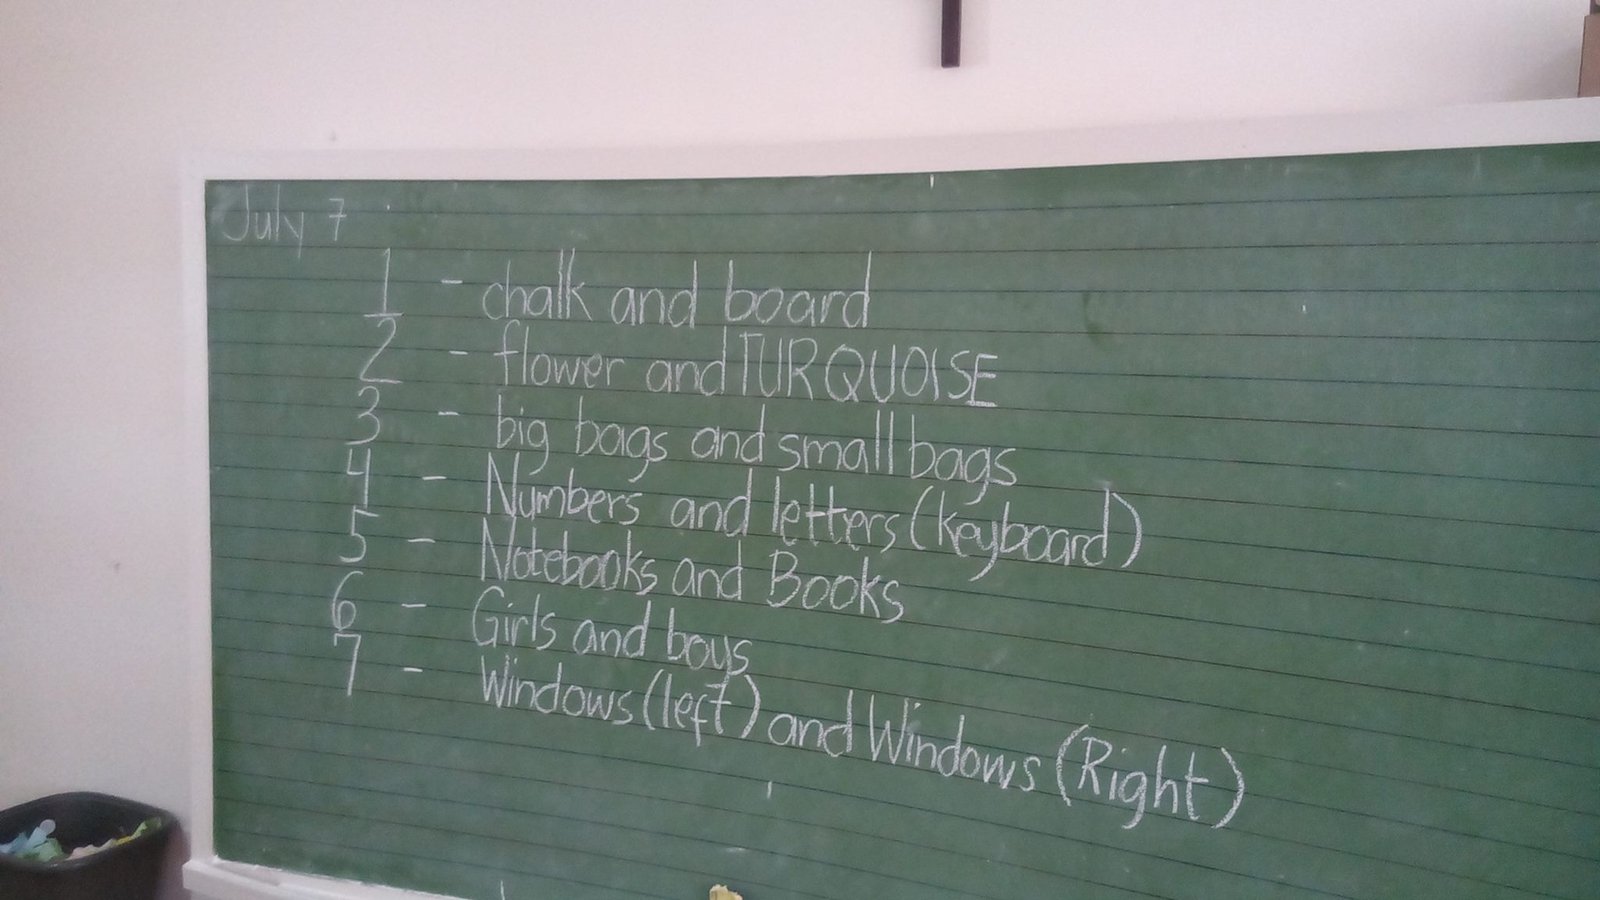 July 7
1 - chalk and board
2 - flower and TURQUOISE
3 - big bags and small bags
4 - Numbers and letters (keyboard)
5 - Notebooks and Books
6 - Girls and boys
7 - Windows (left) and Windows (Right)